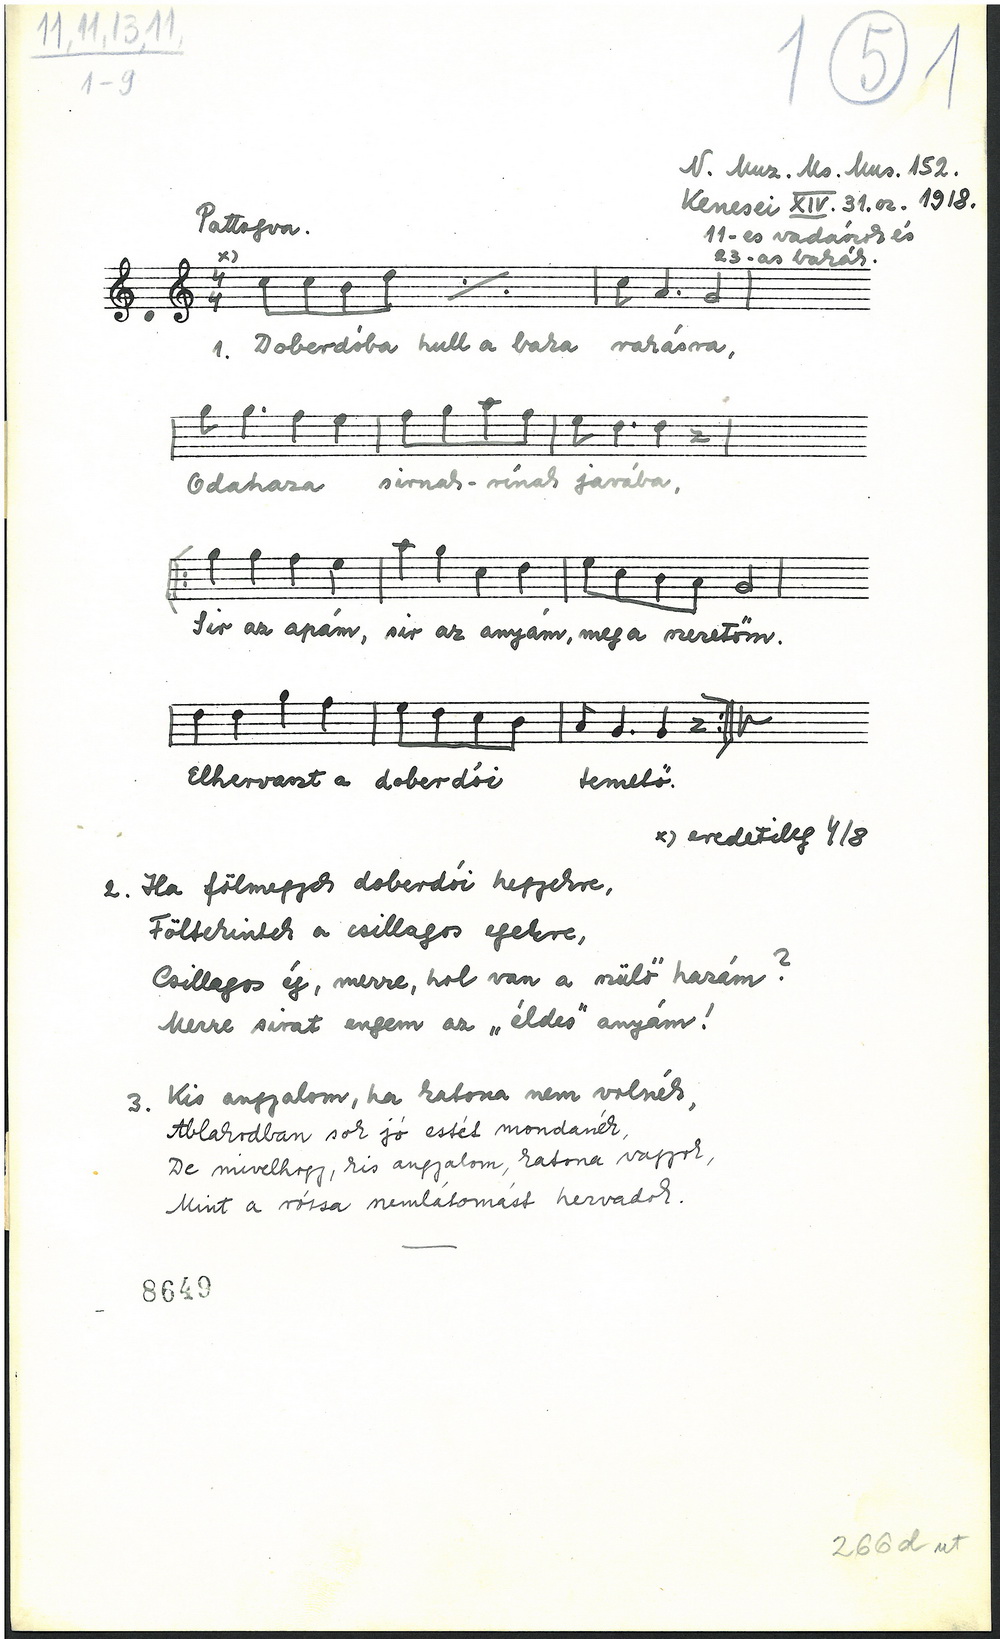 11, 11, 13, 11,
1-9
1 5 1
N. Muz. Ms. Mus. 152.
Kenesei XIV. 31. oz. 1918.
11-es vadászok és
23-as bakák.
Pattogva.
x)
4
4
1. Doberdóba hull a baka rakásra,
Odahaza sirnak-rínak javába,
Sir az apám, sir az anyám, meg a szeretőm.
Elhervaszt a doberdói temető.
x) eredetileg 4/8
2. Ha fölmegyek doberdói hegyekre,
Föltekintek a csillagos egekre,
Csillagos ég, merre, hol van a szülő hazám?
Merre sirat engem az „éldes" anyám!
3. Kis angyalom, ha katona nem volnék,
Ablakodban sok jó estét mondanék,
De mivelhogy, kis angyalom, katona vagyok,
Mint a rózsa nemlátomást hervadok.
8649
266d ut